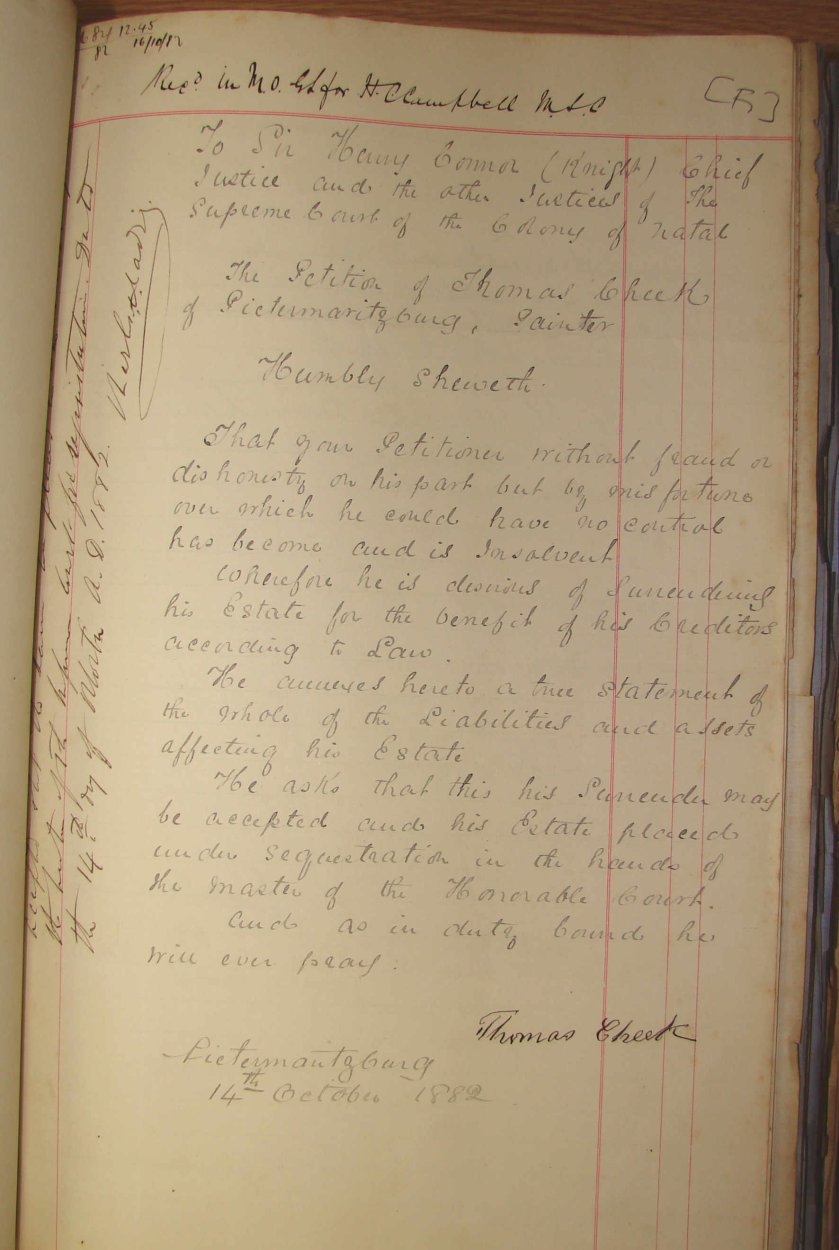 12.45
82 16/10/82
Recd in M.O. for H C Campbell M.S.C
[B]
To Sir Henry Connor (Knight) Chief
Justice and the other Justices of The
Supreme Court of the Colony of Natal
The Petition of Thomas Cheek
of Pietermaritzburg, Painter
Humbly Sheweth.
That your Petitioner without fraud or
dishonesty on his part but by misfortune
over which he could have no control
has become and is Insolvent
Wherefore he is desirous of Surrendering
his Estate for the benefit of his Creditors
according to Law.
He annexes hereto a true statement of
the whole of the Liabilities and assets
affecting his Estate
He asks that this his Surrender may
be accepted and his Estate placed
under Sequestration in the hands of
the Master of the Honorable Court.
And as in duty bound he
will ever pray.
Thomas Cheek
Pietermaritzburg
14th October 1882
the 14th day of A.D. 1882.